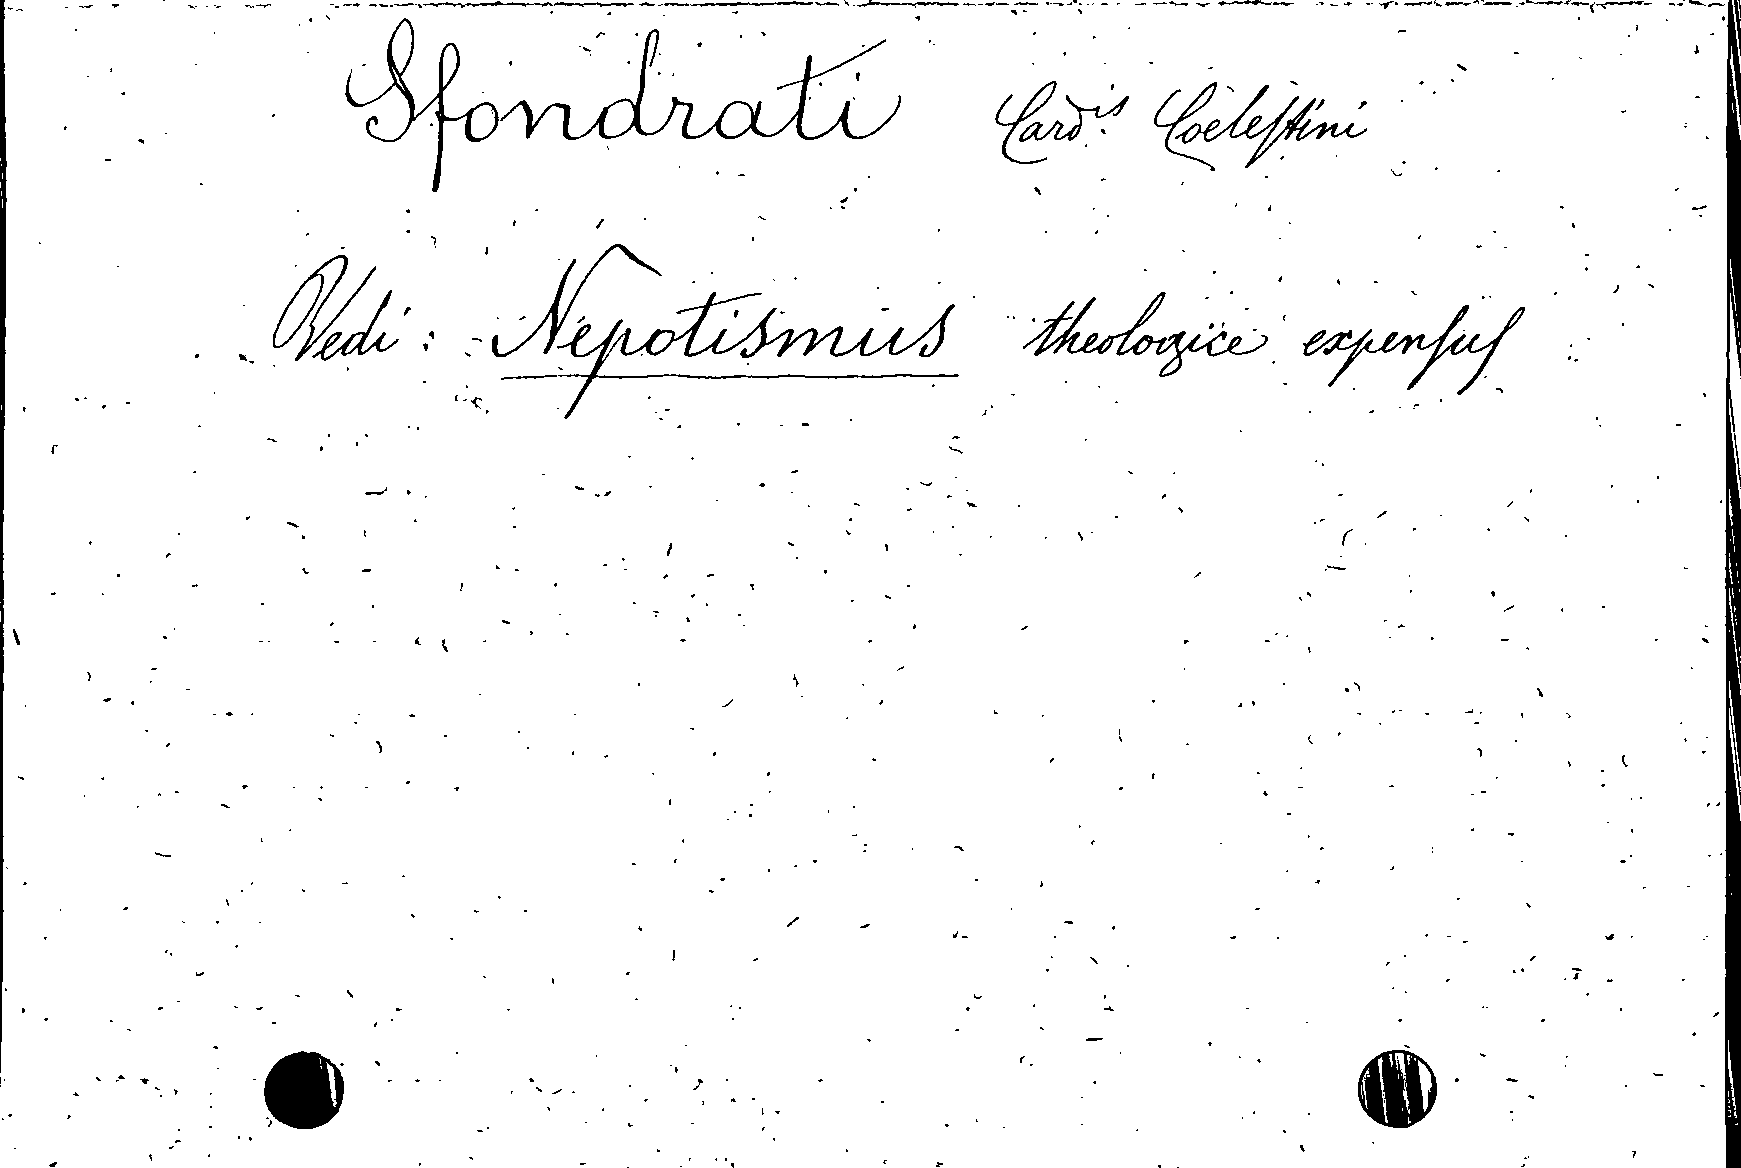 Sfondrati Card.is Coelestini
Vedi: Nepotismus theologice expensus